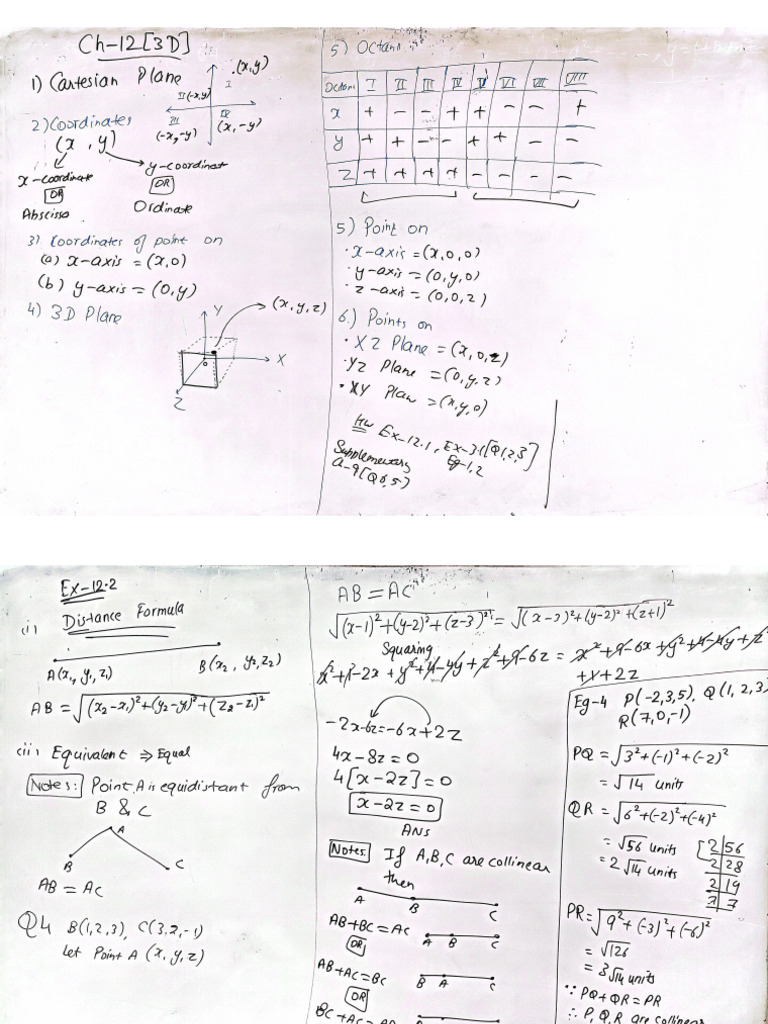 Ch-12[3D]
1) Cartesian Plane
.(x,y)
I
II(-x,y)
III
(-x,-y)
IV
(x,-y)
2) Coordinates
(x, y)
x-coordinate
OR
Abscissa
y-coordinat
OR
Ordinate
3) Coordinates of point on
(a) x-axis = (x,0)
(b) y-axis = (0,y)
4) 3D Plane
(x,y,z)
Y
X
Z
o
5) Octant
Octant I II III IV V VI VII VIII
x + - - + + - - +
y + + - - + + - -
Z + + + + - - - -
5) Point on
• x-axis = (x,0,0)
• y-axis = (0,y,0)
• z-axis = (0,0,z)
6.) Points on
• XZ Plane = (x,0,z)
• YZ Plane = (0,y,z)
• XY Plane = (x,y,0)
HW Ex-12.1, Ex-3.1[Q1,2,3]
Eg-1,2
Supplementary
Ex-12.2
(i) Distance Formula
A(x₁, y₁, z₁)
B(x₂, y₂, z₂)
AB = √(x₂-x₁)²+(y₂-y₁)²+(z₂-z₁)²
(ii) Equivalent ⇒ Equal
Notes: Point A is equidistant from
B & C
A
B
C
AB = AC
Q4 B(1,2,3), C(3,2,-1)
Let Point A (x,y,z)
AB = AC
√(x-1)²+(y-2)²+(z-3)² = √(x-3)²+(y-2)²+(z+1)²
Squaring
x²+1-2x+y²+4-4y+z²+9-6z = x²+9-6x+y²+4-4y+z²
+1+2z
-2x-6z = -6x+2z
4x-8z=0
4[x-2z]=0
x-2z=0
Ans
Notes: If A,B,C are collinear
then
A B C
AB+BC=AC
OR
A B C
AB+AC=BC
OR
B A C
BC+AC=AB
Eg-4 P(-2,3,5), Q(1,2,3)
R(7,0,-1)
PQ = √3²+(-1)²+(-2)²
= √14 units
QR = √6²+(-2)²+(-4)²
= √56 units
= 2√14 units
2 56
2 28
2 19
7 7
PR = √9²+(-3)²+(-6)²
= √126
= 3√14 units
∵ PQ+QR=PR
∴ P,Q,R are collinear